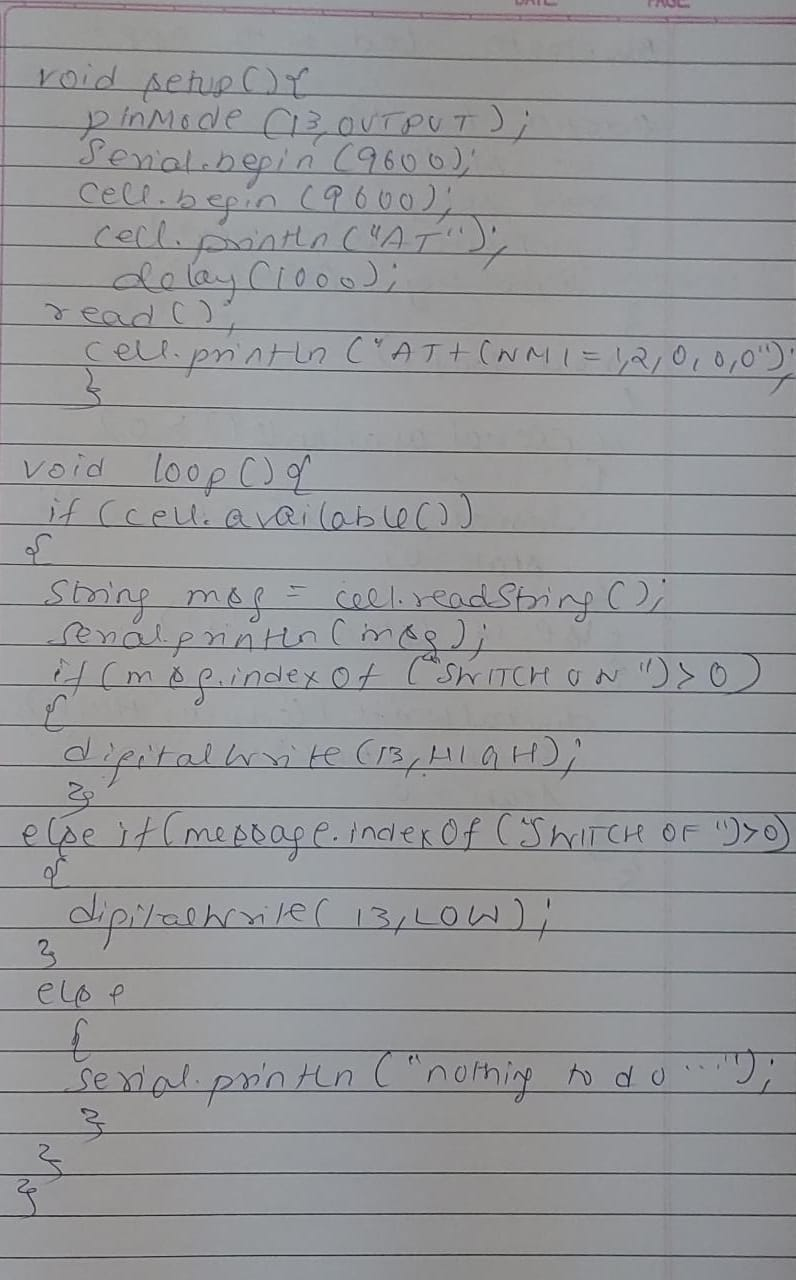 DATE PAGE
void setup(){
pinMode (13, OUTPUT);
Serial.begin (9600);
cell.begin (9600);
cell.println ("AT");
delay (1000);
read();
cell.println ("AT+CNMI=1,2,0,0,0");
}
void loop(){
if (cell.available())
{
String msg = cell.readString();
serial.println (msg);
if (msg.indexOf ("SWITCH ON")>0)
{
digitalWrite (13, HIGH);
}
else if (message.indexOf ("SWITCH OF")>0)
{
digitalWrite( 13, LOW);
}
else
{
serial.println ("nothing to do...");
}
}
}